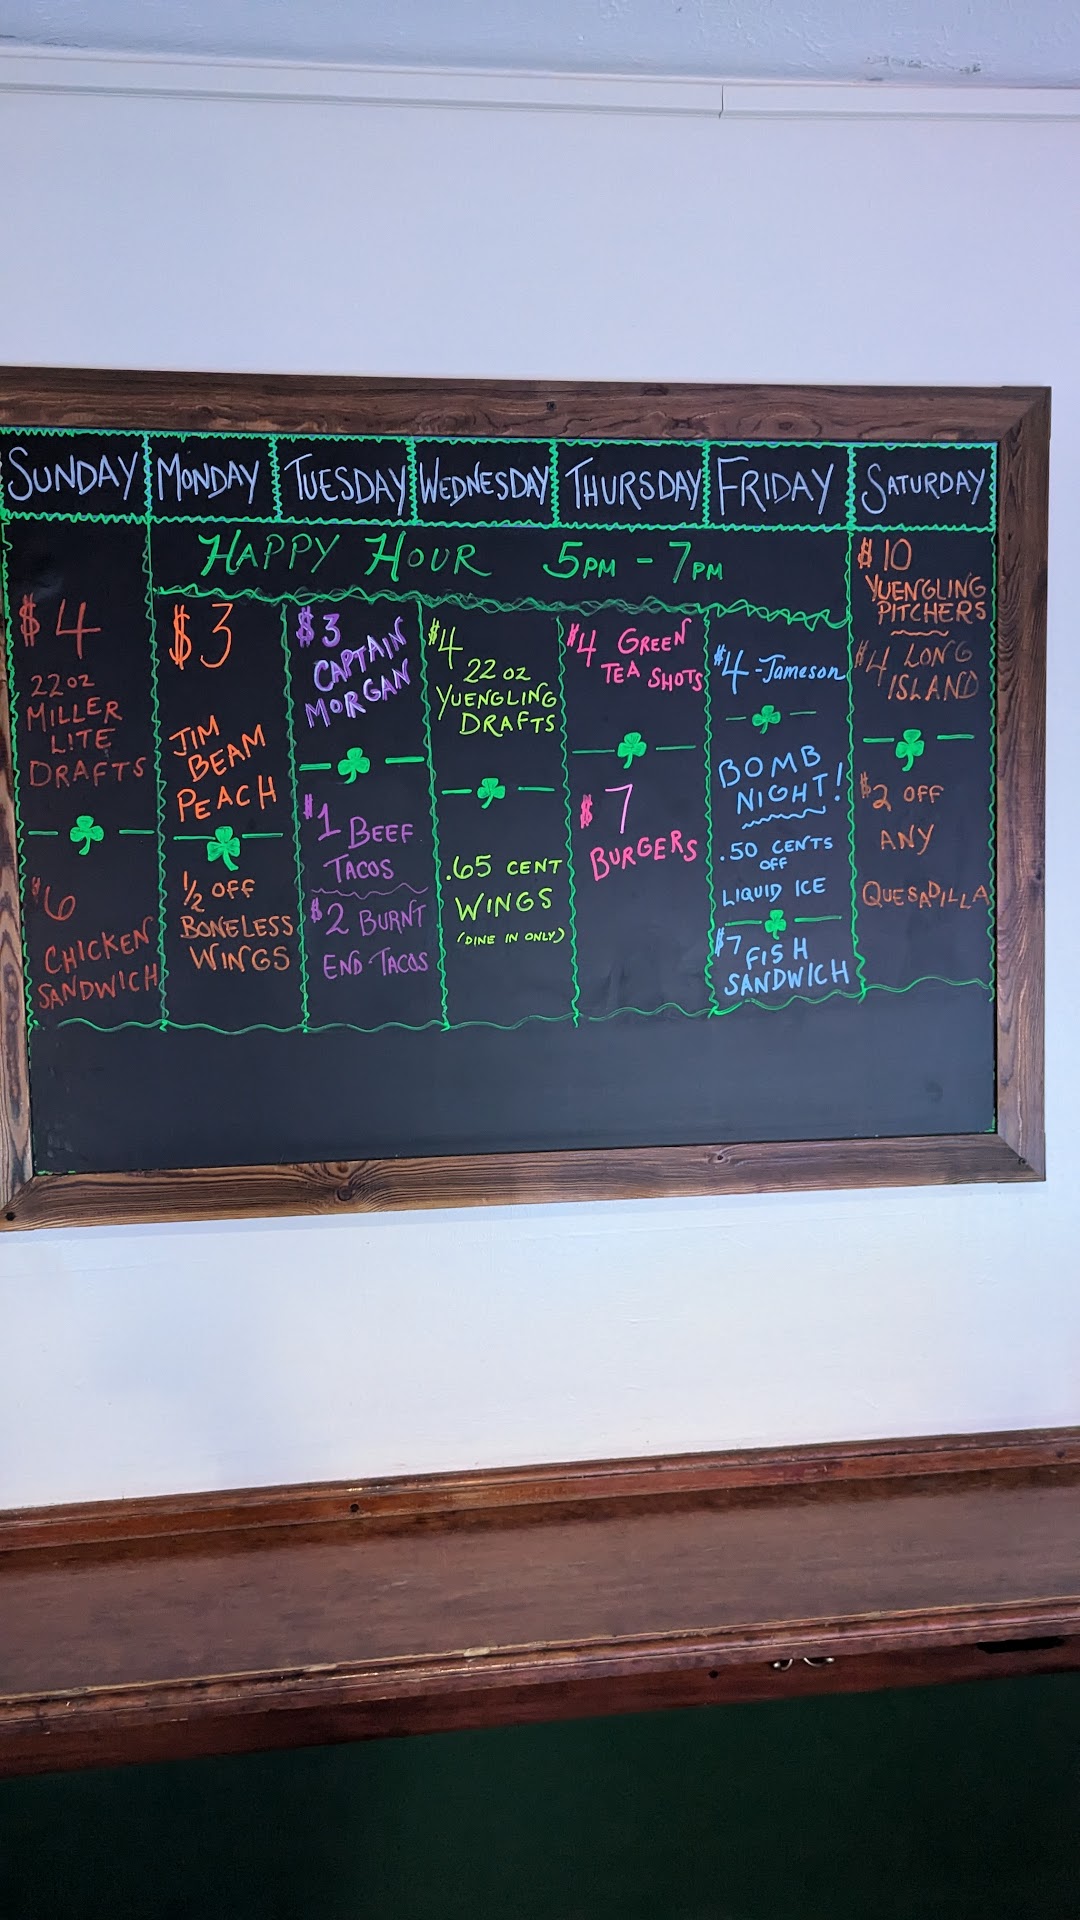 SUNDAY MONDAY TUESDAY WEDNESDAY THURSDAY FRIDAY SATURDAY
HAPPY HOUR 5PM - 7PM
$4
22oz
MILLER
LITE
DRAFTS
$6
CHICKEN
SANDWICH
$3
JIM
BEAM
PEACH
1/2 OFF
BONELESS
WINGS
$3
CAPTAIN
MORGAN
$1 BEEF
TACOS
$2 BURNT
END TACOS
$4
22 oz
YUENGLING
DRAFTS
.65 CENT
WINGS
(DINE IN ONLY)
$4 GREEN
TEA SHOTS
$7
BURGERS
$4 - Jameson
BOMB
NIGHT!
.50 CENTS
OFF
LIQUID ICE
$7 FISH
SANDWICH
$10
YUENGLING
PITCHERS
$4 LONG
ISLAND
$2 OFF
ANY
QUESADILLA